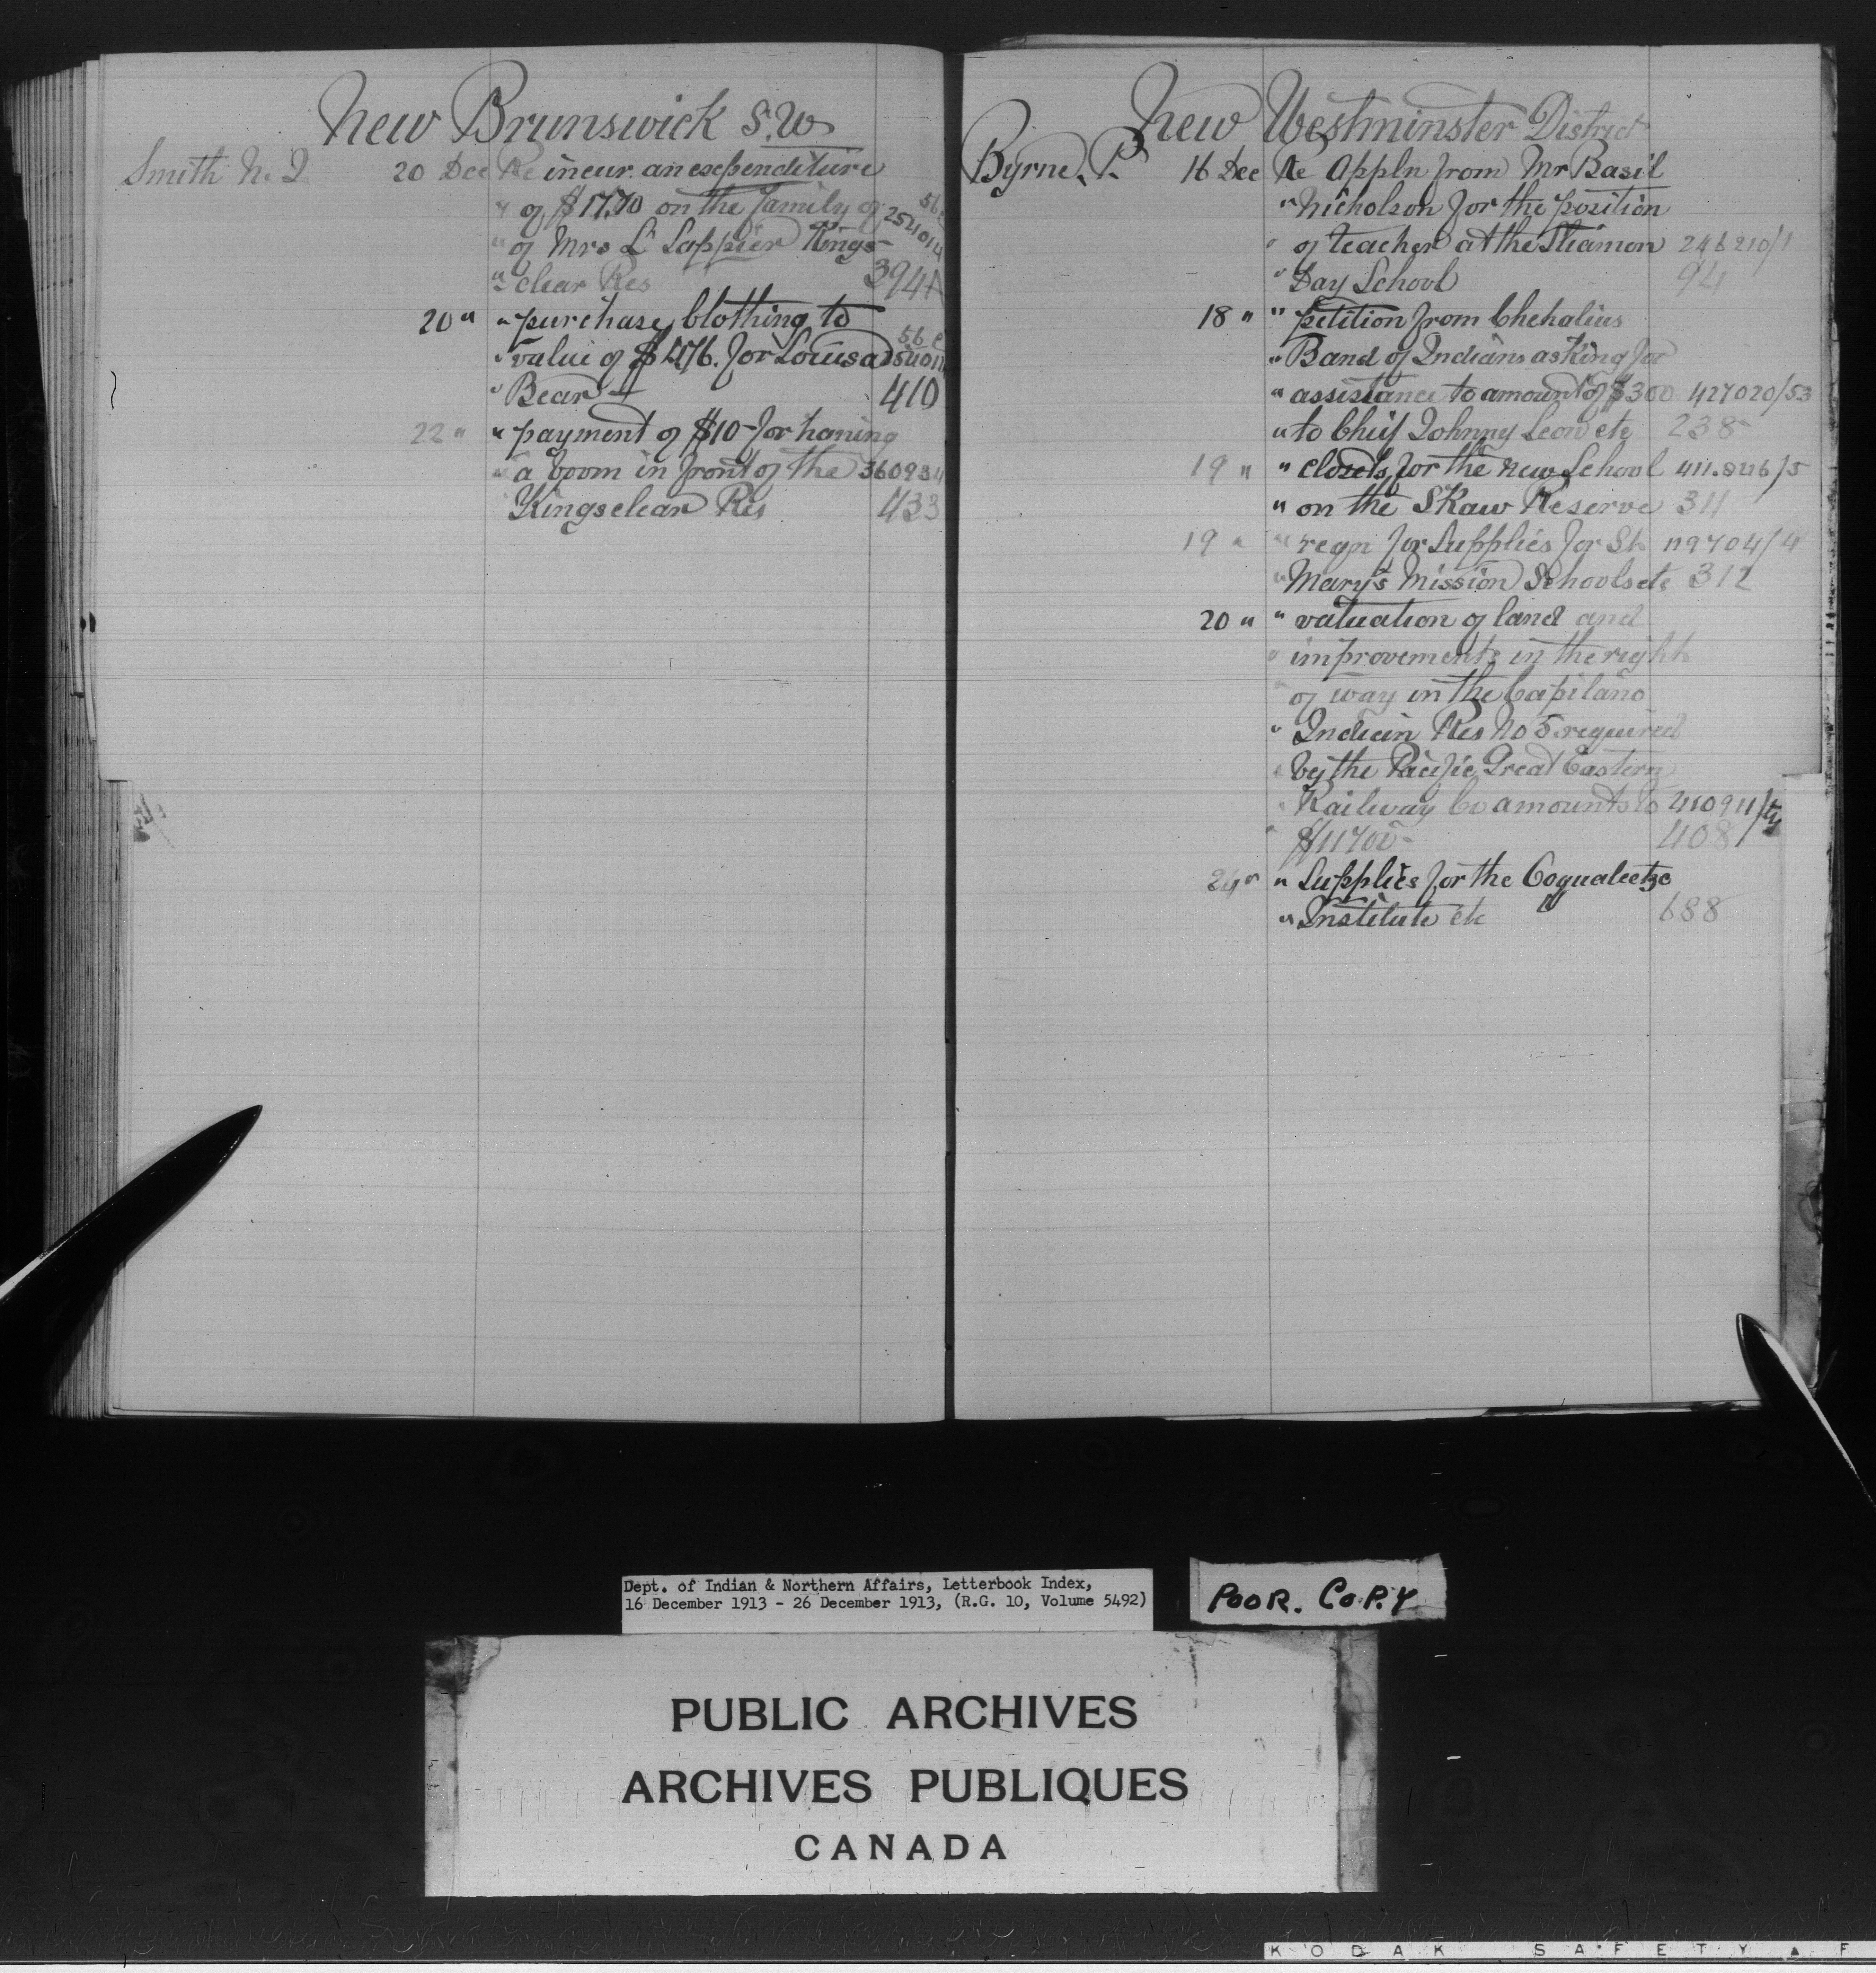 New Brunswick S.W
Smith N. J 20 Dec Re incur. an expenditure
" of $17.70 on the family of 56 e
" of Mrs L Lappier Kings- 254014
" clear Res 394A
20 " " purchase clothing to
" value of for Louisa 56 e
" Bear 410
22 " " payment of $10- for
" a boom in front of the 360934
Kingsclear Res 433
New Westminster District
Byrne. P. 16 Dec Re Appln from Mr Basil
" Nicholson for the position
" of teacher at the Sliamon 246210/1
" Day School 94
18 " " petition from Chehalius
" Band of Indians asking for
" assistance to amount of $300 427020/53
" to Chief Johnny Leon etc 238
19 " " closets for the new School 411.826/5
" on the Skaw Reserve 311
19 " " reqn for supplies for St 119704/4
" Mary's Mission Schools etc 312
20 " " valuation of land and
" improvements in the right
" of way in the Capilano
" Indian Res No 5 required
" by the Pacific Great Eastern
" Railway Co amounts to 410911/
" 408
24 " " Supplies for the Coqualeetze
" Institute etc 688
Dept. of Indian & Northern Affairs, Letterbook Index,
16 December 1913 - 26 December 1913, (R.G. 10, Volume 5492)
POOR. COPY
PUBLIC ARCHIVES
ARCHIVES PUBLIQUES
CANADA
KODAK SAFETY ▲ F